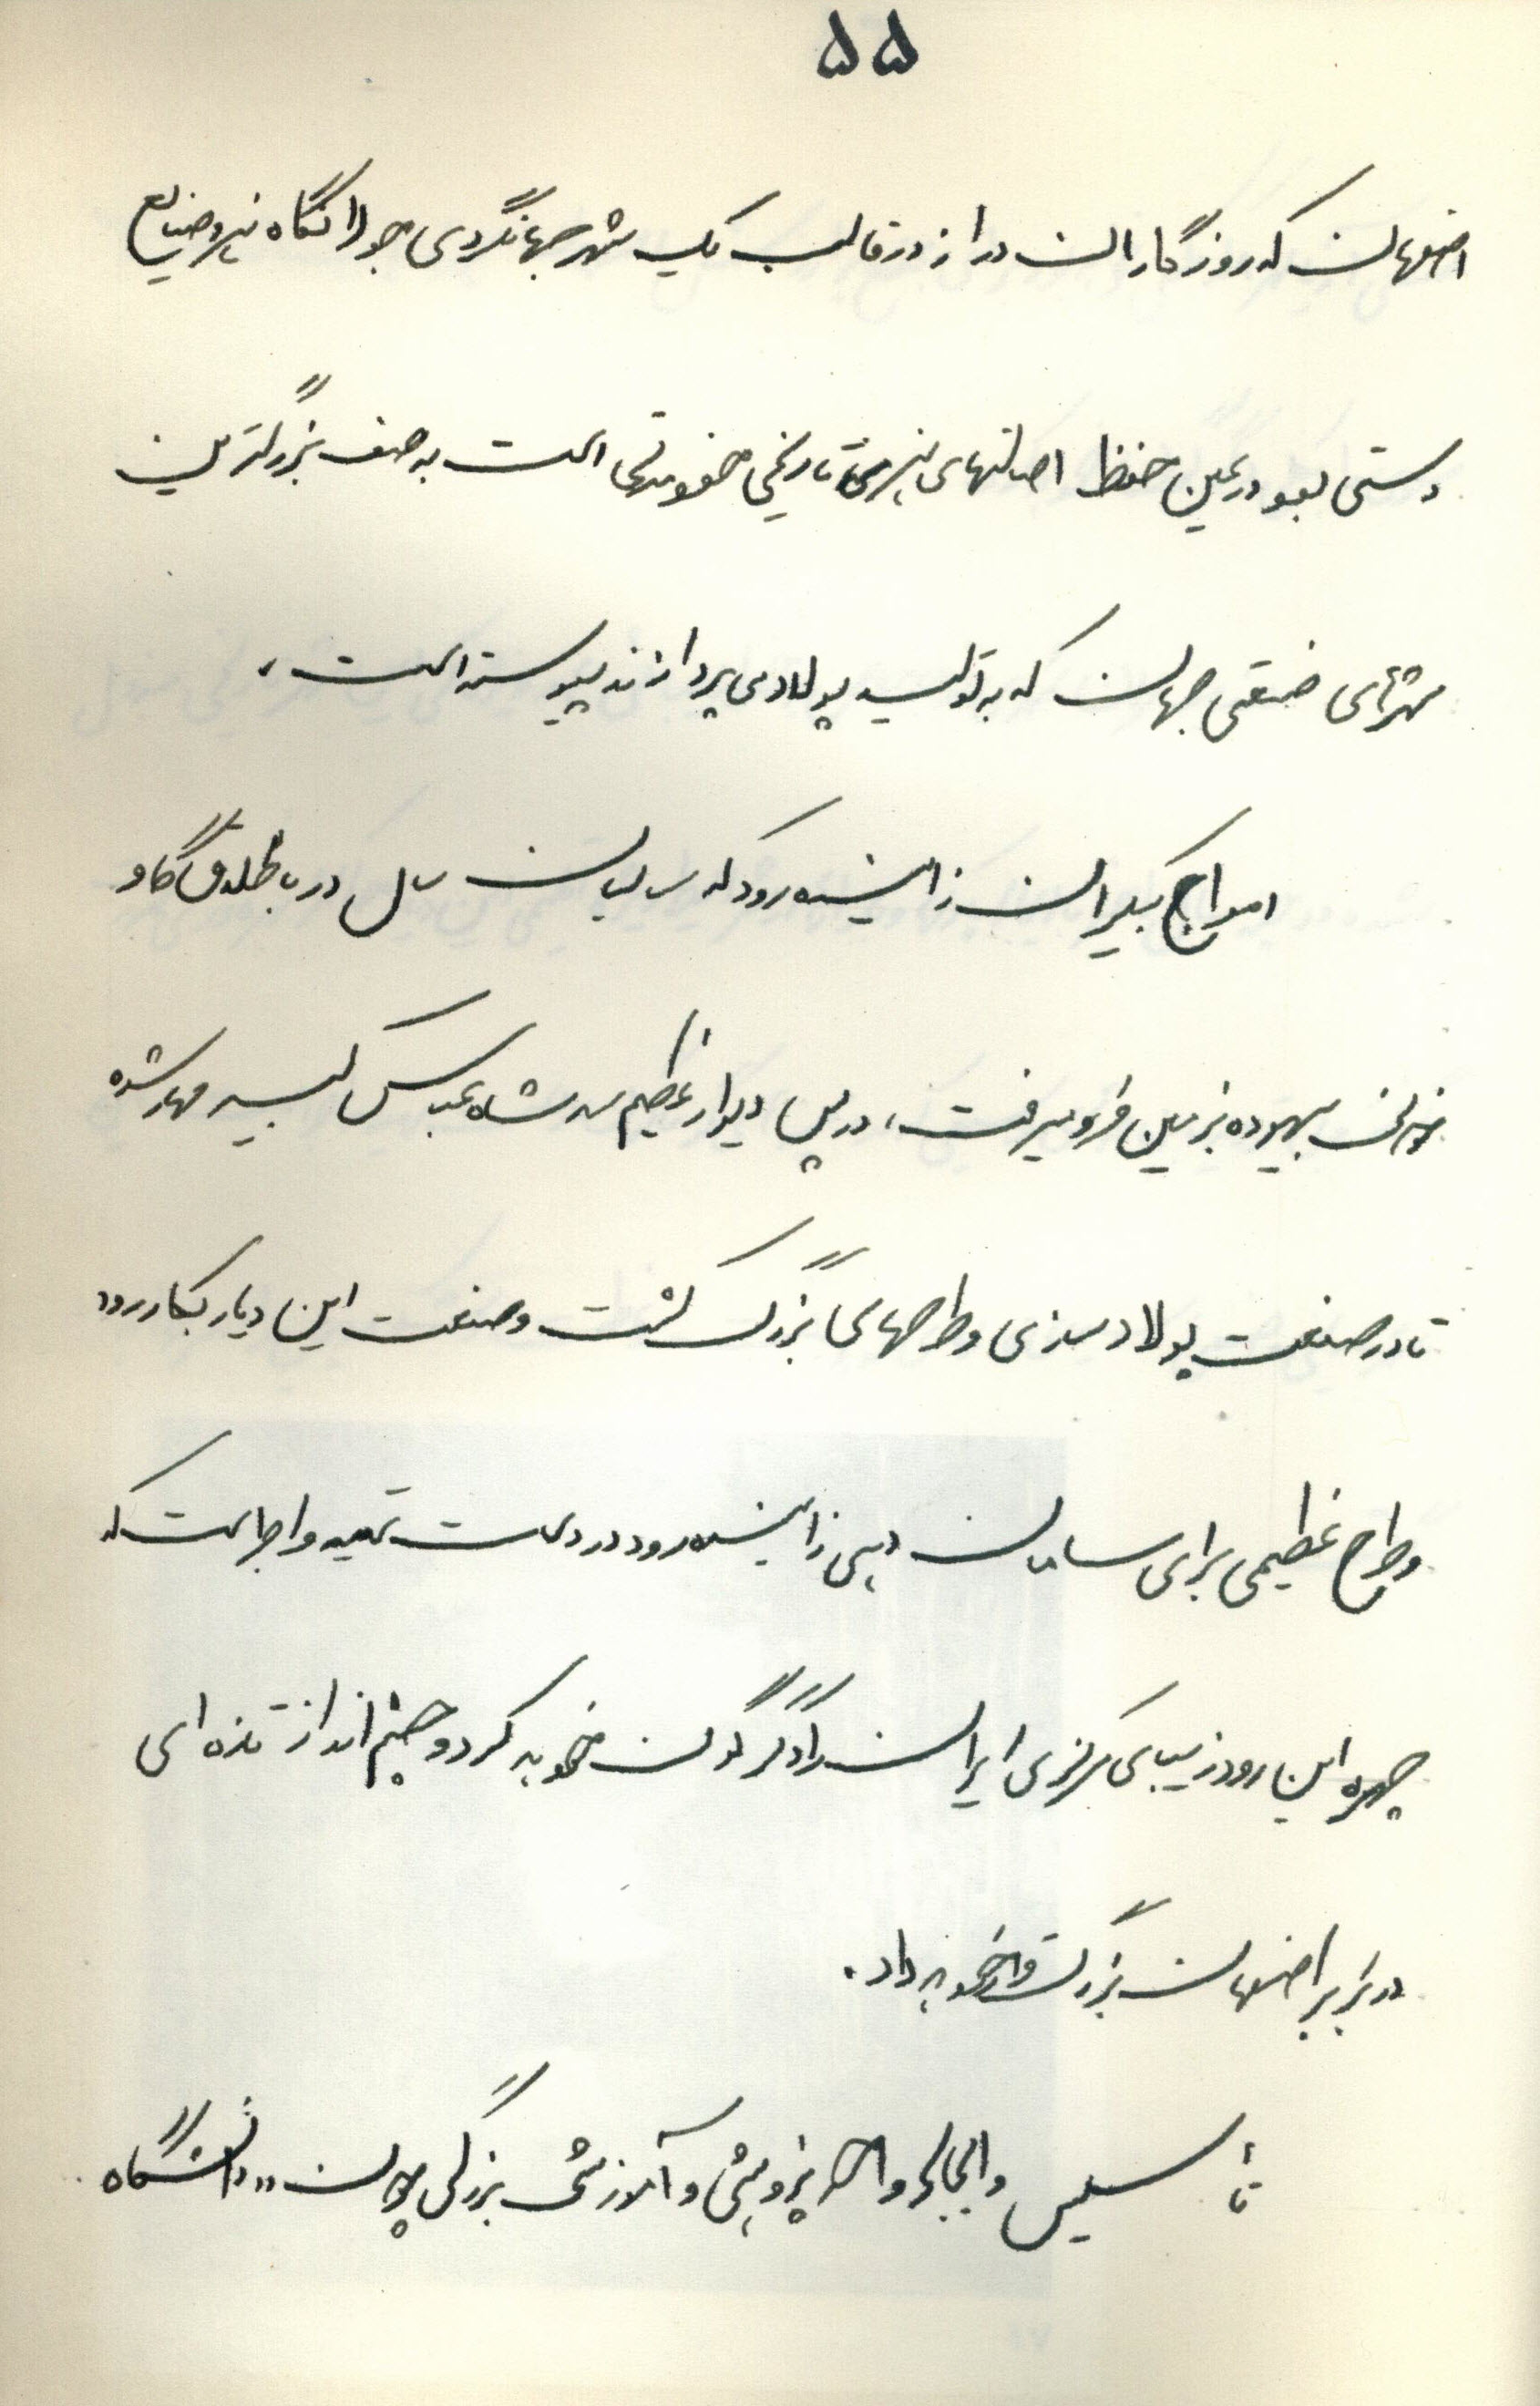 ۵۵
اصفهان که روزگاران دراز در قالب یک شهر جهانگردی جولانگاه هنر و صنایع
دستی بود در عین حفظ اصالتهای هنری تاریخی خود مدتی است به صف بزرگترین
شهرهای صنعتی جهان که به تولید پولاد می پردازند پیوسته است،
امواج بیکران زاینده رود که سالیان سال در باطلاق گاو
خونی بیهوده بزمین فرو میرفت، در پس دیوار عظیم سد شاه عباس کبیر مهار شده
تا در صنعت پولادسازی و طرحهای بزرگ کشت و صنعت این دیار بکار رود
و طرح عظیمی برای سامان دهی زاینده رود در دست تهیه و اجراست که
چهره این رود زیبای مرکزی ایران را دگرگون خواهد کرد و چشم انداز تازه ای
در برابر اصفهان بزرگ قرار خواهد داد.
تأسیس و ایجاد واحد پژوهشی و آموزشی بزرگی چون «دانشگاه